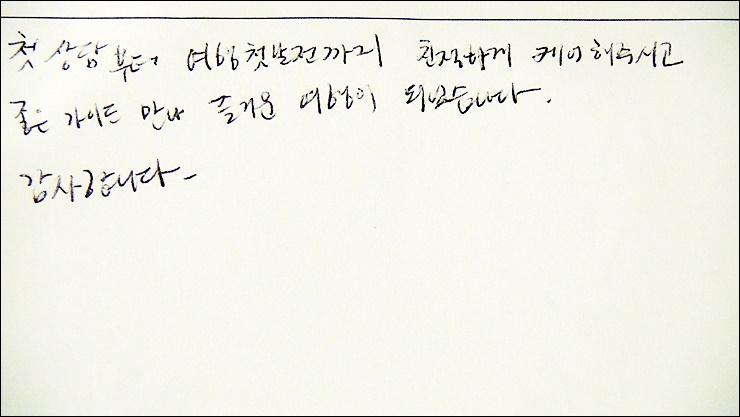 첫 상담부터 여행첫날전까지 친절하게 케어해주시고
좋은 가이드 만나 즐거운 여행이 되었습니다.
감사합니다-